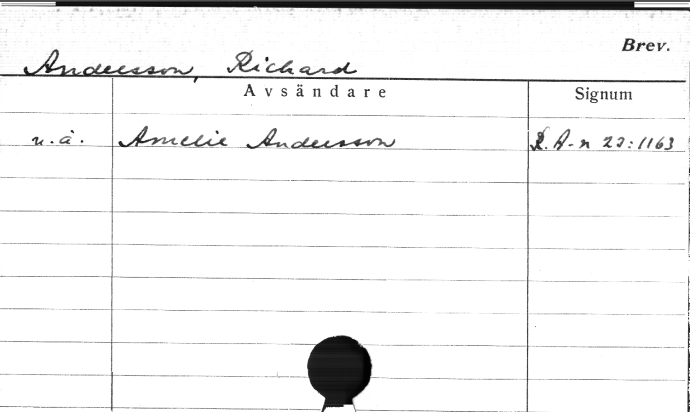 Brev.
Andersson, Richard
Avsändare Signum
u. å. Amelie Andersson R. A-n 22:1163